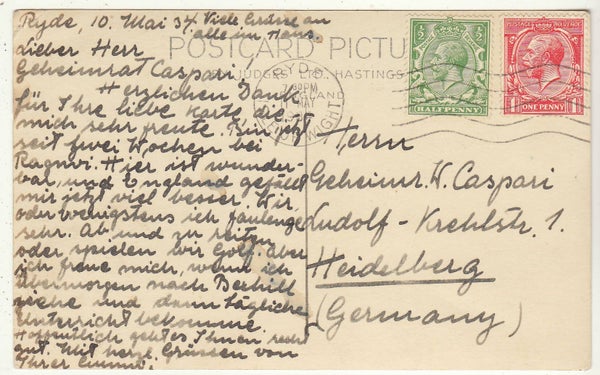 Ryde, 10. Mai 34. Viele Grüsse an
alle im Haus.
Lieber Herr
Geheimrat Caspari!
Herzlichen Dank
für Ihre liebe Karte die
mich sehr freute. Bin jetzt
seit zwei Wochen bei
Ragnvi. Hier ist wunder-
bar, und England gefällt
mir jetzt viel besser. Wir
oder wenigstens ich faulenze
sehr. Ab und zu reiten
oder spielen wir Golf. Aber
ich freue mich, wenn ich
übermorgen nach Bexhill
ziehe und dann tägliche
Unterricht bekomme.
Hoffentlich geht es Ihnen recht
gut. Mit herzl. Grüssen von
Ihrer
POSTCARD PICTU
JUDGES LTD., HASTINGS
RYDE
30PM
MAY
ISLE OF WIGHT
HALFPENNY
POSTAGE REVENUE
ONE PENNY
Herrn
Geheimr. W. Caspari
Ludolf-Krehlstr. 1.
Heidelberg
(Germany)